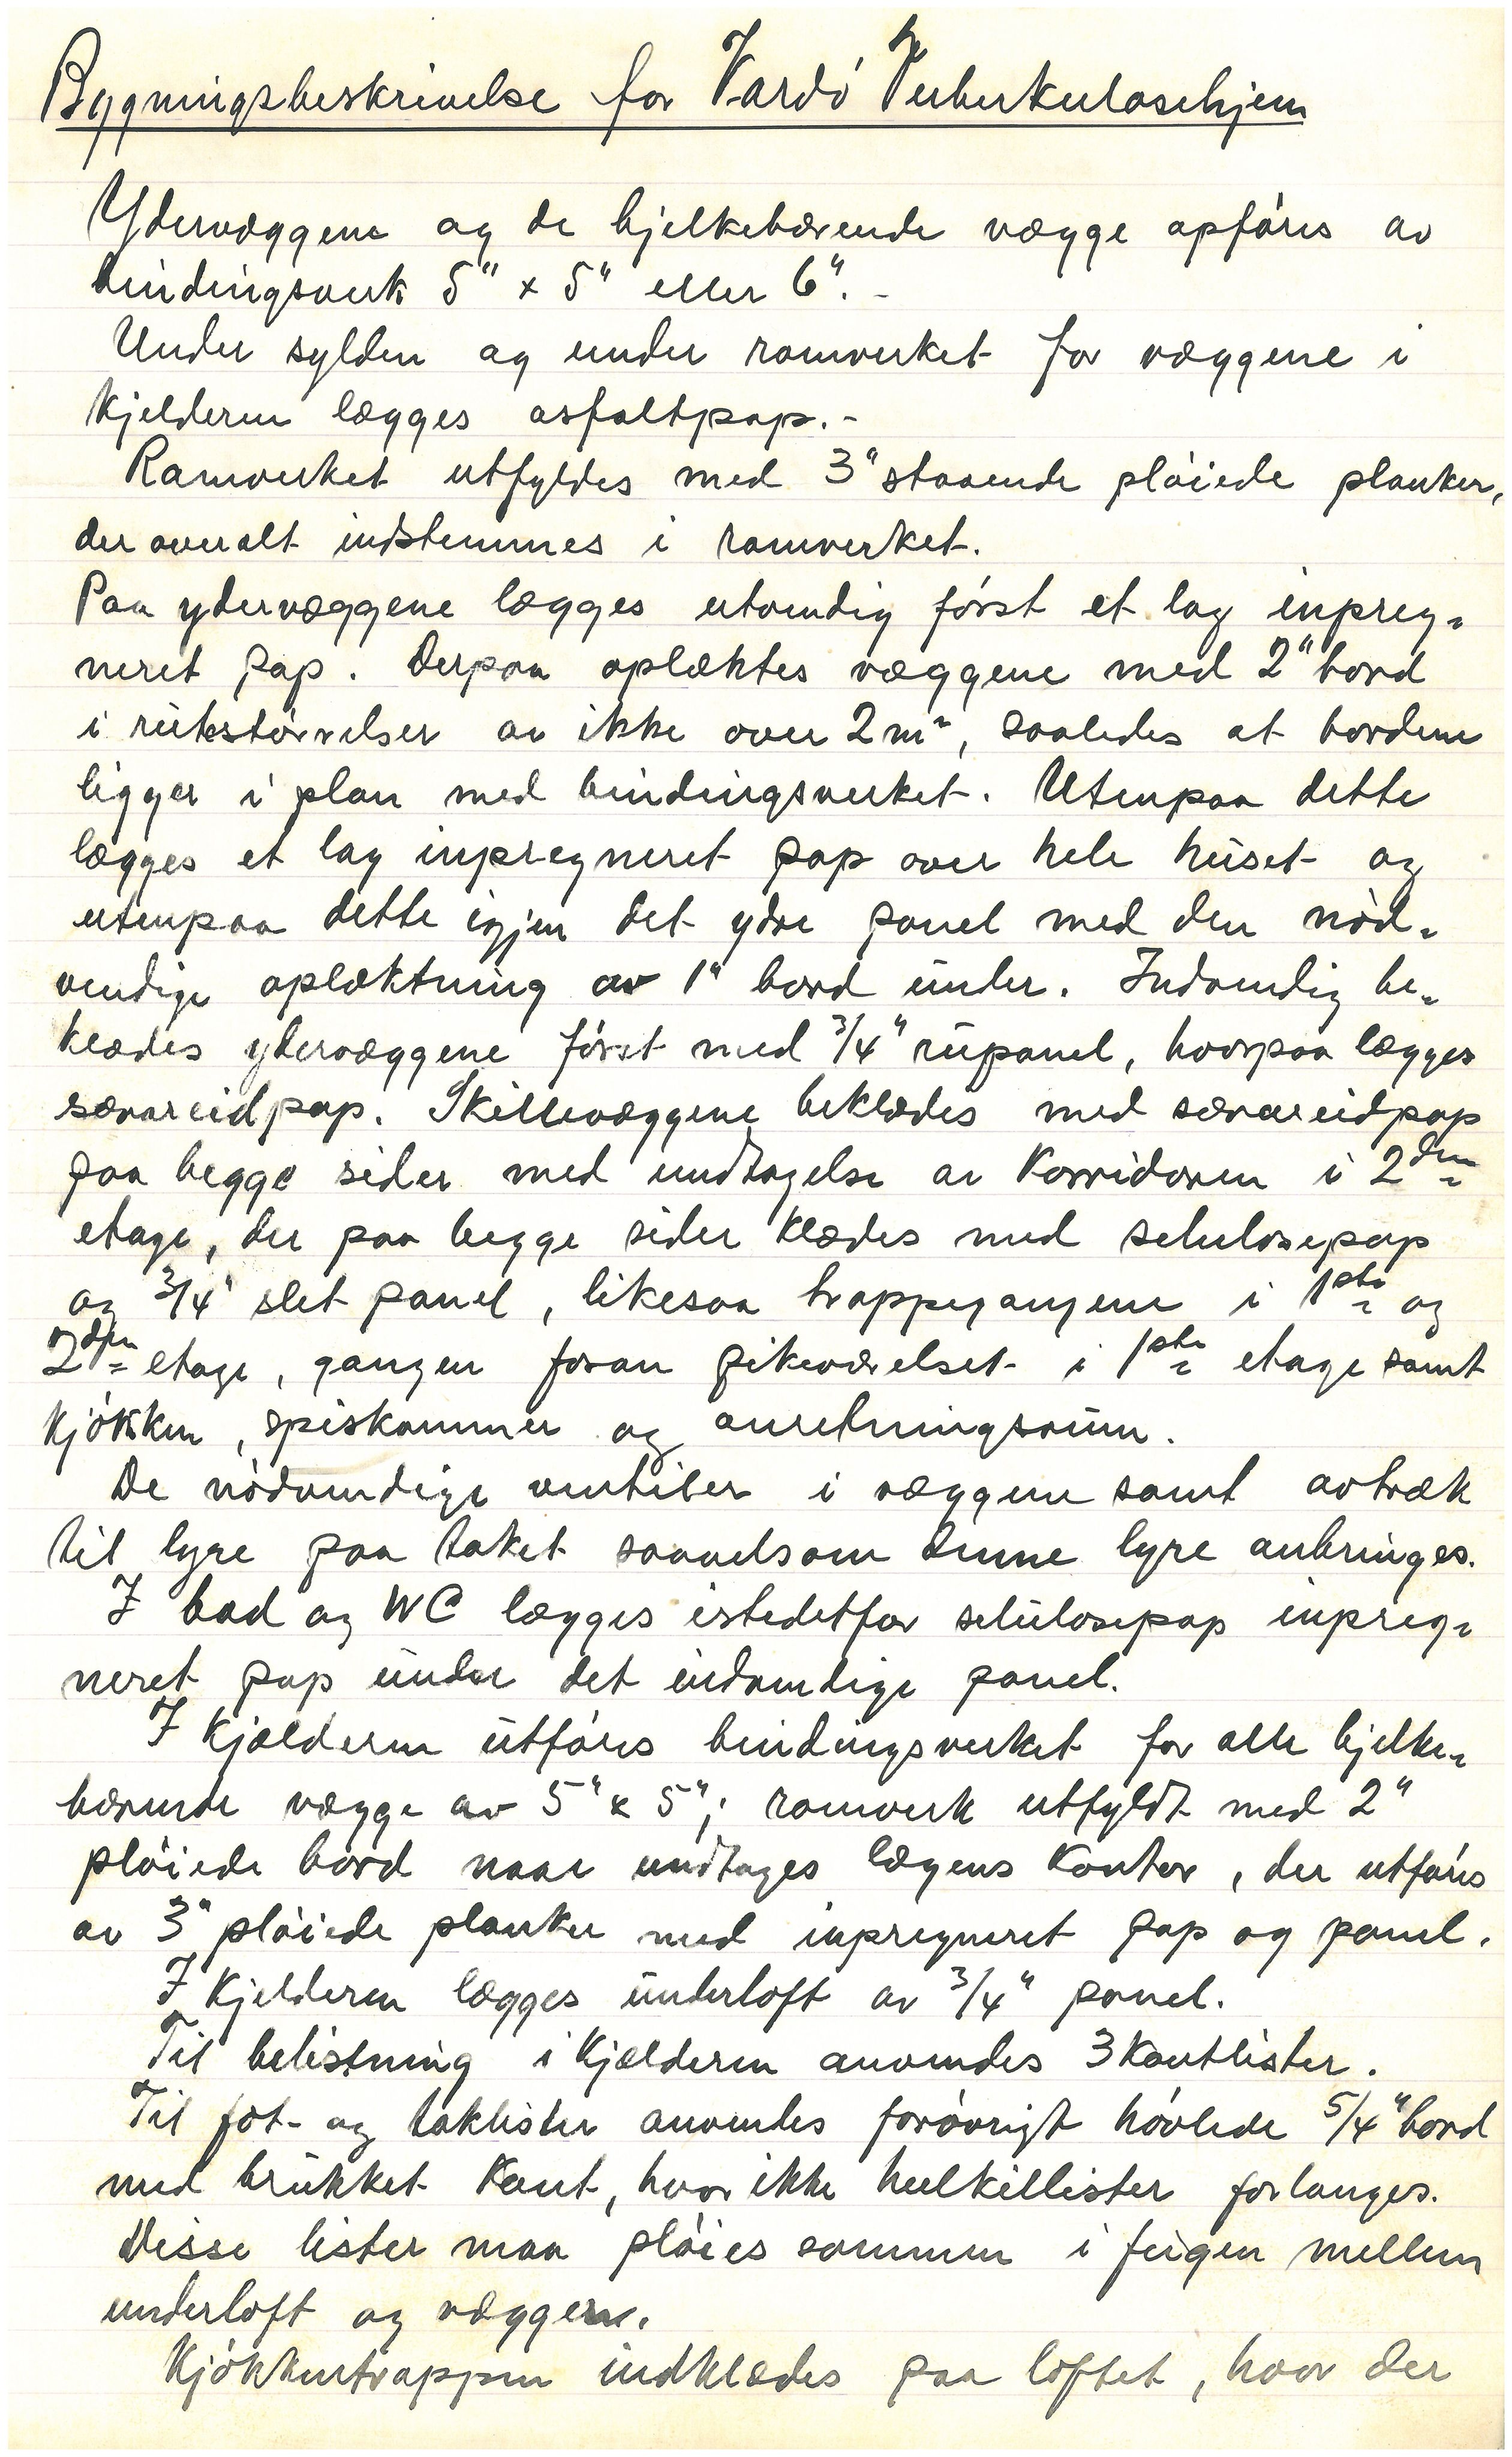 Bygningsbeskrivelse for Vardö Tuberkulosehjem
Ydervæggene og de bjelkebærende vægge opföres av
bindingsverk 5" x 5" eller 6". -
Under sylden og under ramverket for væggene i
kjelderen lægges asfaltpap. -
Ramverket utfyldes med 3" staaende plöiede planker,
der overalt indstemmes i ramverket.
Paa ydervæggene lægges utvendig först et lag inpreg=
neret pap. Derpaa oplektes væggene med 2" bord
i rutestörrelser av ikke over 2 m², saaledes at bordene
ligger i plan med bindingsverket. Utenpaa dette
lægges et lag inpregneret pap over hele huset og
utenpaa dette igjen det ydre panel med den nöd=
vendige oplektning av 1" bord under. Indvendig be=
klædes ydervæggene först med 3/4" rupanel, hvorpaa lægges
sævareidpap. Skillevæggene beklædes med sævareidpap
paa begge sider med undtagelse av korridoren i 2den
etage, der paa begge sider klædes med selulosepap
og 3/4" slet panel, likesaa trappegangene i 1ste og
2den etage, gangen foran pikeværelset i 1ste etage samt
kjökken, spiskammer og anretningsrum.
De nödvendige ventiler i væggene samt avtræk
til lyre paa taket saavelsom denne lyre anbringes.
I bad og WC lægges istedetfor selulosepap inpreg=
neret pap under det indvendige panel.
I kjælderen utföres bindingsverket for alle bjelke=
bærende vægge av 5" x 5"; ramverk utfyldt med 2"
plöiede bord naar undtages lægens kontor, der utföres
av 3" plöiede planker med inpregneret pap og panel.
I kjelderen lægges underloft av 3/4" panel.
Til belistning i kjælderen anvendes 3kantlister.
Til fot- og taklister anvendes forövrigt hövlede 5/4" bord
med brukket kant, hvor ikke hulkillister forlanges.
Disse lister maa plöies sammen i fugen mellem
underloft og væggene.
Kjökkentrappen indklædes paa loftet, hvor der